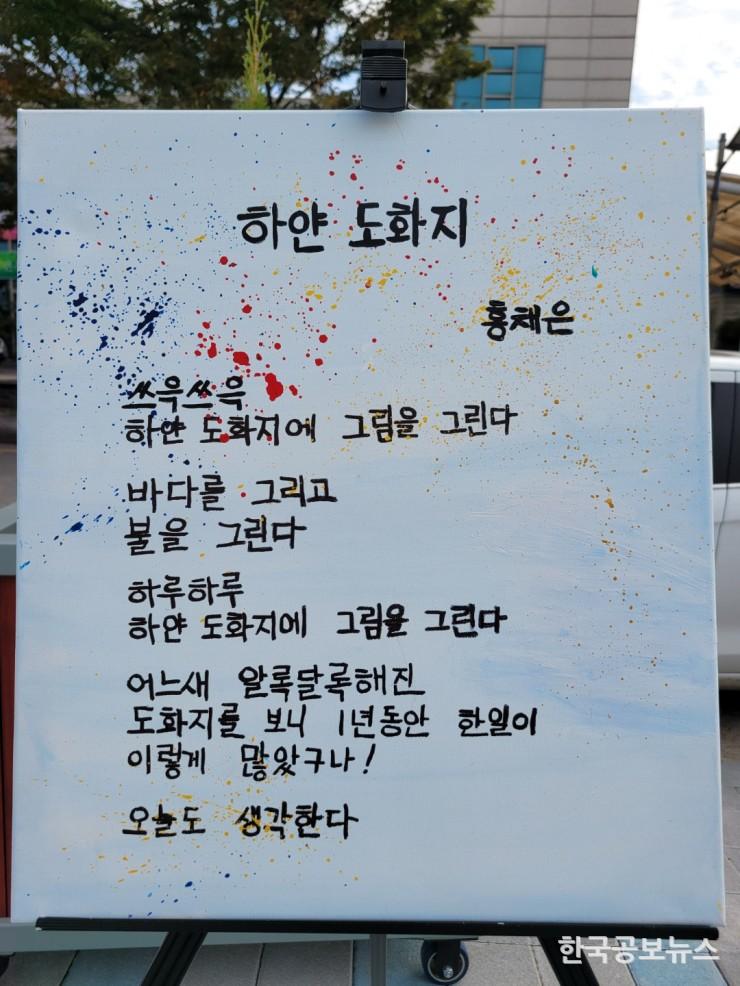 하얀 도화지
홍채은
쓰윽쓰윽
하얀 도화지에 그림을 그린다
바다를 그리고
불을 그린다
하루하루
하얀 도화지에 그림을 그린다
어느새 알록달록해진
도화지를 보니 1년동안 한일이
이렇게 많았구나!
오늘도 생각한다
한국공보뉴스